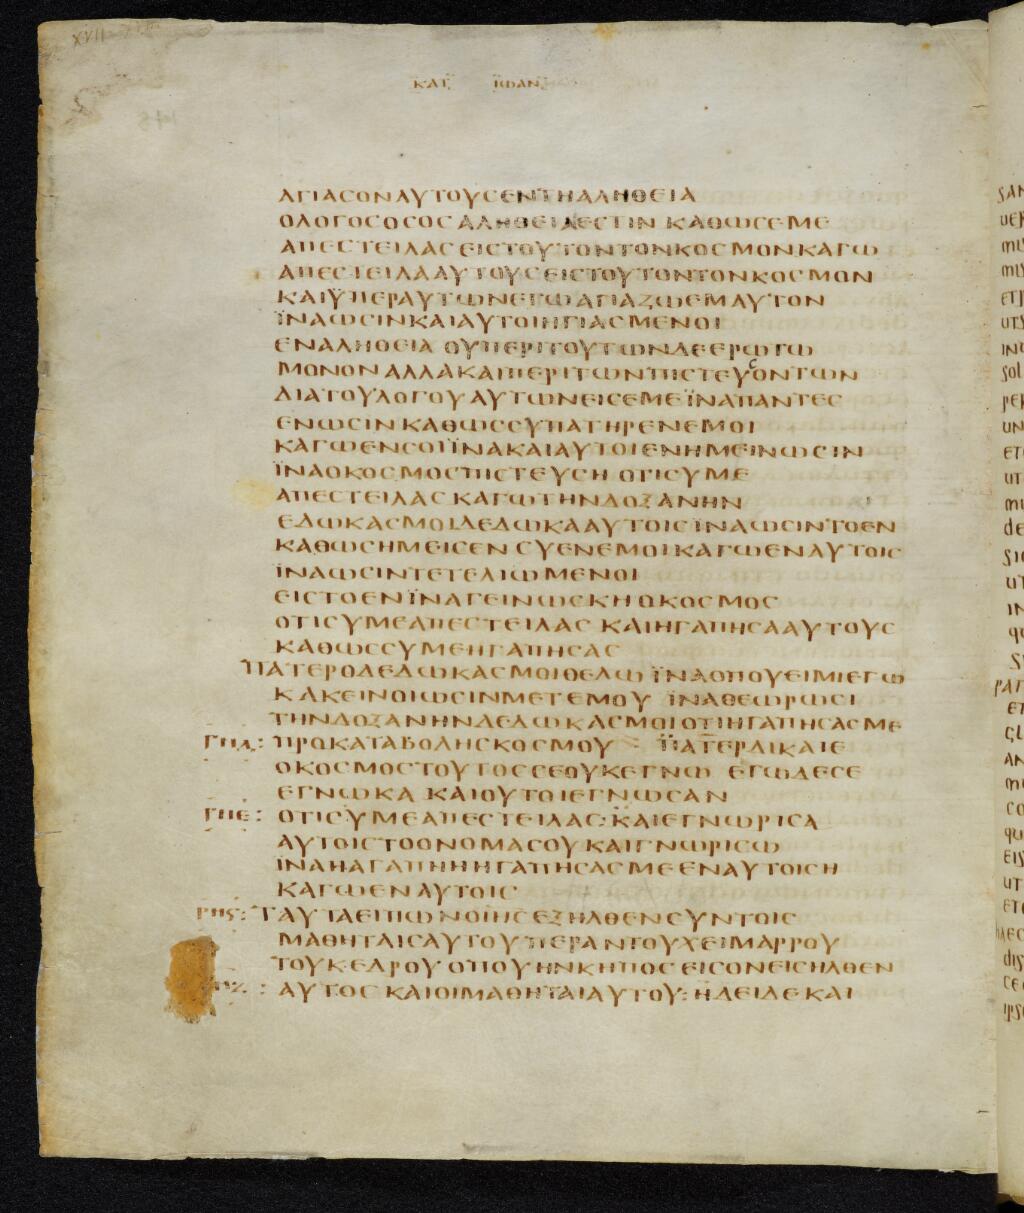 XVII
ΚΑΤ ΪΩΑΝ
ΑΓΙΑСΟΝΑΥΤΟΥСΕΝΤΗΑΛΗΘΕΙΑ
ΟΛΟΓΟСΟСΟСΑΛΗΘΕΙΑΕСΤΙΝ ΚΑΘΩСΕΜΕ
ΑΠΕСΤΕΙΛΑСΕΙСΤΟΥΤΟΝΤΟΝΚΟСΜΟΝΚΑΓΩ
ΑΠΕСΤΕΙΛΑΑΥΤΟΥСΕΙСΤΟΥΤΟΝΤΟΝΚΟСΜΟΝ
ΚΑΙΫΠΕΡΑΥΤΩΝΕΓΩΑΓΙΑΖΩΕΜΑΥΤΟΝ
ΪΝΑΩСΙΝΚΑΙΑΥΤΟΙΗΓΙΑСΜΕΝΟΙ
ΕΝΑΛΗΘΕΙΑ ΟΥΠΕΡΙΤΟΥΤΩΝΔΕΕΡΩΤΩ
ΜΟΝΟΝΑΛΛΑΚΑΙΠΕΡΙΤΩΝΠΙСΤΕΥСΟΝΤΩΝ
ΔΙΑΤΟΥΛΟΓΟΥΑΥΤΩΝΕΙСΕΜΕΪΝΑΠΑΝΤΕС
ΕΝΩСΙΝΚΑΘΩССΥΠΑΤΗΡΕΝΕΜΟΙ
ΚΑΓΩΕΝСΟΙΪΝΑΚΑΙΑΥΤΟΙΕΝΗΜΕΙΝΩСΙΝ
ΪΝΑΟΚΟСΜΟСΠΙСΤΕΥСΗ ΟΤΙСΥΜΕ
ΑΠΕСΤΕΙΛΑСΚΑΓΩΤΗΝΔΟΞΑΝΗΝ
ΕΔΩΚΑСΜΟΙΔΕΔΩΚΑΑΥΤΟΙСΪΝΑΩСΙΝΤΟΕΝ
ΚΑΘΩСΗΜΕΙСΕΝ СΥΕΝΕΜΟΙΚΑΓΩΕΝΑΥΤΟΙС
ΪΝΑΩСΙΝΤΕΤΕΛΙΩΜΕΝΟΙ
ΕΙСΤΟΕΝΪΝΑΓΕΙΝΩСΚΗΟΚΟСΜΟС
ΟΤΙСΥΜΕΑΠΕСΤΕΙΛΑС ΚΑΙΗΓΑΠΗСΑΑΥΤΟΥС
ΚΑΘΩССΥΜΕΗΓΑΠΗСΑС
ΠΑΤΕΡΟΔΕΔΩΚΑСΜΟΙΘΕΛΩ ΪΝΑΟΠΟΥΕΙΜΙΕΓΩ
ΚΑΚΕΙΝΟΙΩСΙΝΜΕΤΕΜΟΥ ΪΝΑΘΕΩΡΩСΙ
ΤΗΝΔΟΞΑΝΗΝΔΕΔΩΚΑСΜΟΙΟΤΙΗΓΑΠΗСΑСΜΕ
ΓΠΔ: ΠΡΟΚΑΤΑΒΟΛΗСΚΟСΜΟΥ ΠΑΤΕΡΔΙΚΑΙΕ
ΟΚΟСΜΟСΤΟΥΤΟССΕΟΥΚΕΓΝΩ ΕΓΩΔΕСΕ
ΕΓΝΩΚΑ ΚΑΙΟΥΤΟΙΕΓΝΩСΑΝ
ΓΠΕ: ΟΤΙСΥΜΕΑΠΕСΤΕΙΛΑС:ΚΑΙΕΓΝΩΡΙСΑ
ΑΥΤΟΙСΤΟΟΝΟΜΑСΟΥ ΚΑΙΓΝΩΡΙСΩ
ΪΝΑΗΑΓΑΠΗΗΗΓΑΠΗСΑСΜΕΕΝΑΥΤΟΙСΗ
ΚΑΓΩΕΝΑΥΤΟΙС
ΓΠς: ΤΑΥΤΑΕΙΠΩΝΟΙΗСΕΞΗΛΘΕΝСΥΝΤΟΙС
ΜΑΘΗΤΑΙСΑΥΤΟΥΠΕΡΑΝΤΟΥΧΕΙΜΑΡΡΟΥ
ΤΟΥΚΕΔΡΟΥΟΠΟΥΗΝΚΗΠΟСΕΙСΟΝΕΙСΗΛΘΕΝ
ΑΥΤΟС ΚΑΙΟΙΜΑΘΗΤΑΙΑΥΤΟΥ:ΗΔΕΙΔΕΚΑΙ